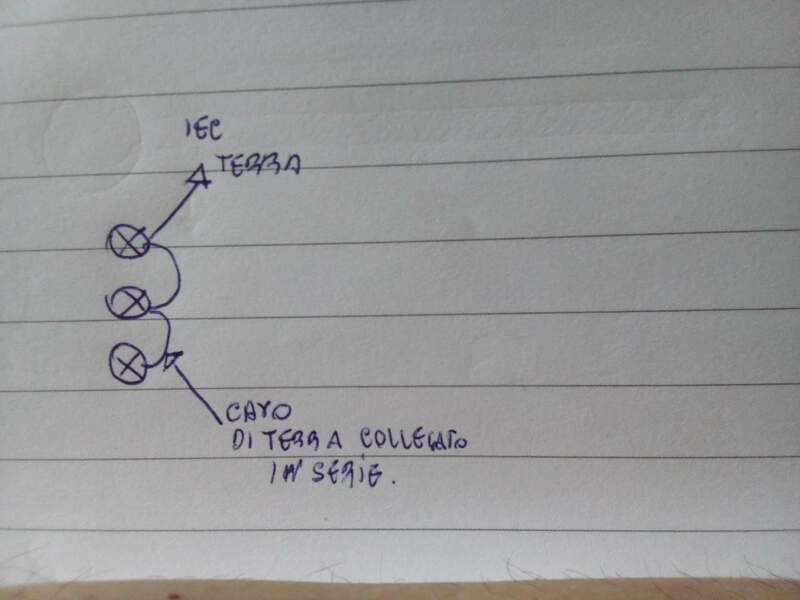 IEC
TERRA
CAVO
DI TERRA COLLEGATO
IN SERIE.